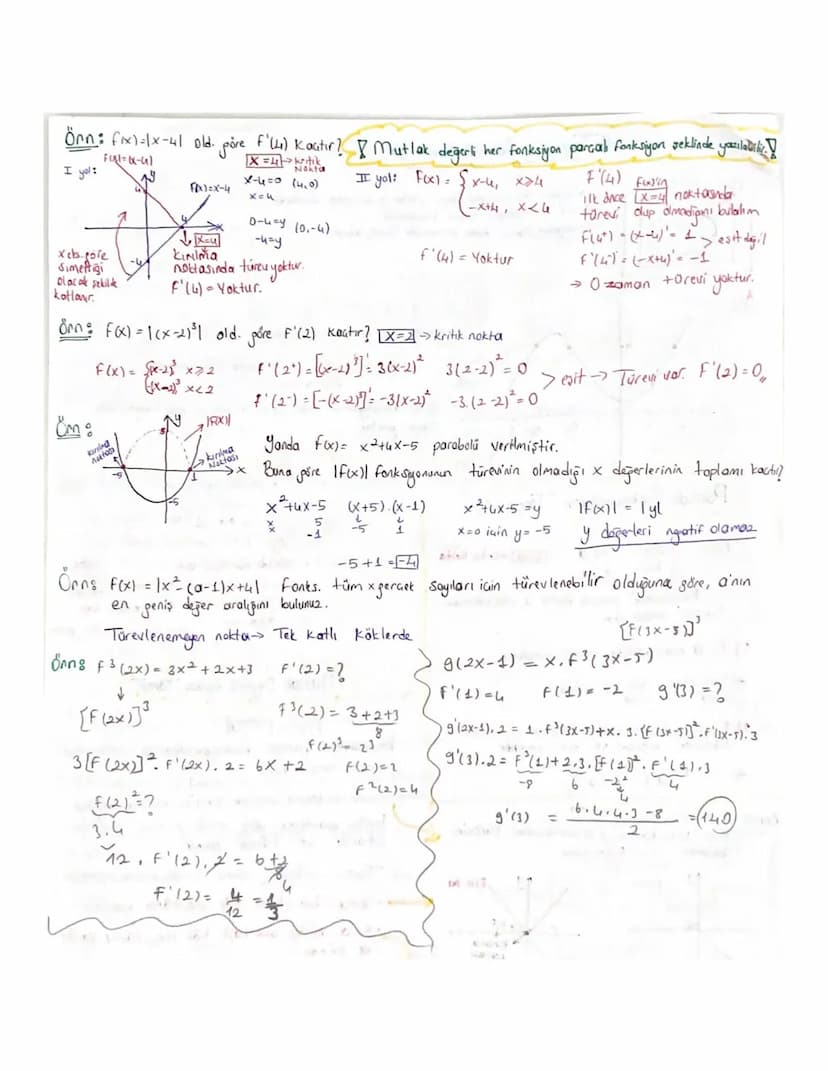 Örn: f(x)=|x-4| old. göre F'(4) Kaçtır?
! Mutlak değerli her fonksiyon parçalı fonksiyon şeklinde yazılabilir. !
I yol:
F(x)=|x-4|
y
4
F(x)=x-4
x
4
-4
X=4
X=4 → kritik nokta
x-4=0 (4,0)
x=4
0-4=y (0,-4)
-4=y
x eks. göre
simetriği
olacak şekilde
katlanır.
Kırılma
noktasında türev yoktur.
F'(4) = Yoktur.
II yol: F(x) = { x-4, x≥4
-x+4, x<4
F'(4) = Yoktur
F'(4)
F(x)'in
ilk önce X=4 noktasında
türevi olup olmadığını bulalım
F'(4⁺) = (x-4)' = 1 > eşit değil
F'(4⁻) = (-x+4)' = -1
→ O zaman türevi yoktur.
Örn: F(x) = |(x-2)³| old. göre F'(2) Kaçtır? X=2 → kritik nokta
F(x) = { (x-2)³ x≥2
-(x-2)³ x<2
F'(2⁺) = [(x-2)³]' = 3(x-2)² 3(2-2)² = 0
F'(2⁻) = [-(x-2)³]' = -3(x-2)² -3.(2-2)² = 0
> eşit → Türevi var. F'(2) = 0,,
Örn:
y
|F(x)|
5
kırılma noktası
kırılma noktası
-5
1
x
-5
Yanda F(x) = x²+4x-5 parabolü verilmiştir.
Buna göre |F(x)| fonksiyonunun türevinin olmadığı x değerlerinin toplamı kaçtır?
x²+4x-5 (x+5).(x-1) x²+4x-5 = y |F(x)| = |y|
x 5 -5 1 x=0 için y = -5 y değerleri negatif olamaz
x -1
-5+1 = -4
Örn: F(x) = |x²-(a-1)x+4| fonks. tüm x gerçet sayıları için türevlenebilir olduğuna göre, a'nın
en geniş değer aralığını bulunuz.
Türevlenemeyen nokta → Tek Katlı Köklerde
Örn: F³(2x) = 3x²+2x+3 F'(2) = ?
↓
[F(2x)]³
F³(2) = 3+2+3
8
F(2)³ = 2³
3[F(2x)]². F'(2x). 2 = 6x+2 F(2)=2
F²(2)=4
F(2)² = ?
3.4
12. F'(2). 2 = 6+2
8 4
F'(2) = 4/12 = 1/3
[F(3x-5)]³
g(2x-1) = x. F³(3x-5)
F'(1)=4 F(1)=-2 g'(3)=?
g'(2x-1). 2 = 1. F³(3x-5)+x. 3. [F(3x-5)]². F'(3x-5). 3
g'(3). 2 = F³(1)+2.3. [F(1)]². F'(1). 3
-8 6 -2² 4
4
g'(3) = 6.4.4.3-8 / 2 = 140